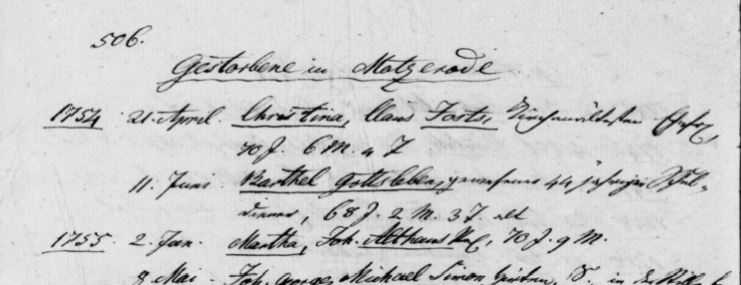 506.
Gestorbene in Motzerode
1754 21. April. Christina, Claus Forts, Kirchenältesten Ehefr,
70 J. 6 M. 4 T
11. Juni Barthel Gottsleben, gewesener 44 jähriger Schul-
diener, 68 J. 2 M. 3 T. alt
1755 2. Jan. Martha, Joh. Althaus 70 J. 9 M.
8 Mai - Joh. George Michael Simon, S. in